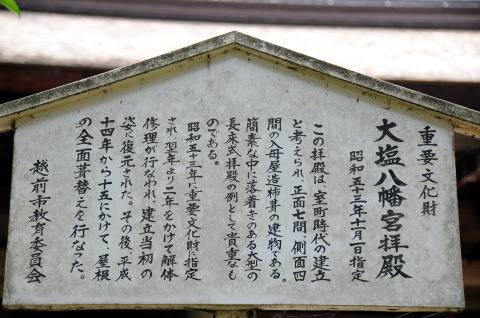 重要文化財
大塩八幡宮拝殿
昭和五十三年十月一日指定
この拝殿は、室町時代の建立
と考えられ、正面七間、側面四
間の入母屋造杮葺の建物である。
簡素な中に落着きのある大型の
長床式拝殿の例として貴重なも
のである。
昭和五十三年に重要文化財に指定
され、翌年より二年をかけて解体
修理が行なわれ、建立当初の
姿に復元された。その後、平成
十四年から十五にかけて、屋根
の全面葺替えを行なった。
越前市教育委員会